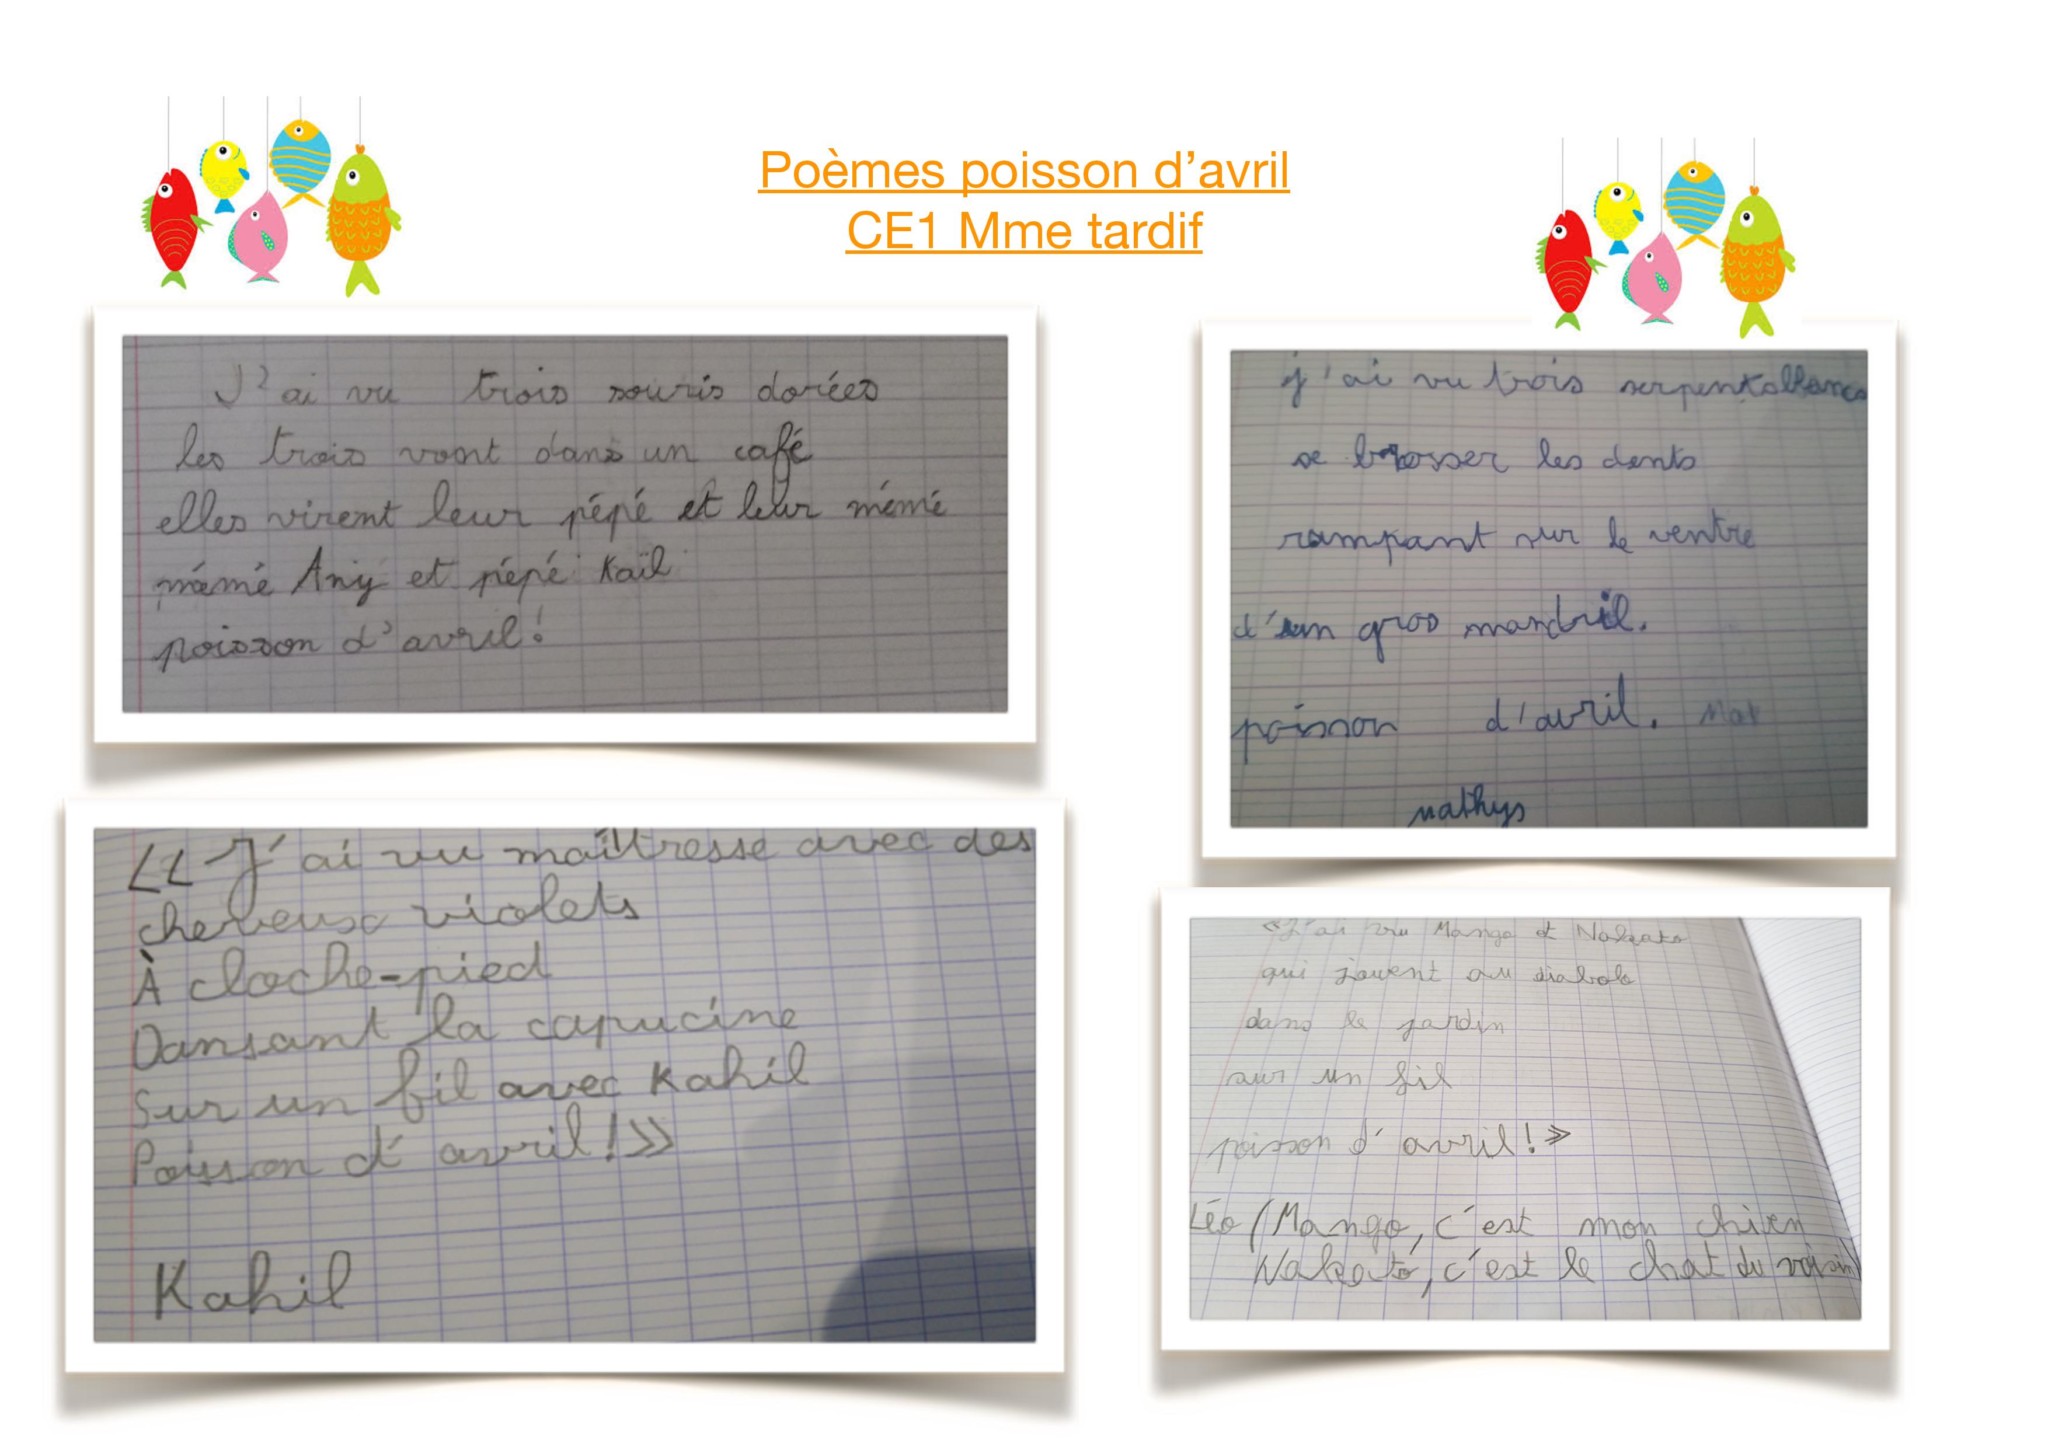 Poèmes poisson d'avril
CE1 Mme tardif
J'ai vu trois souris dorées
les trois vont dans un café
elles virent leur pépé et leur mémé
mémé Any et pépé Kaïl
poisson d'avril!
j'ai vu trois serpents blancs
se brosser les dents
rampant sur le ventre
d'un gros mandril.
poisson d'avril. Mat
mathys
«J'ai vu maîtresse avec des
cheveux violets
À cloche-pied
Dansant la capucine
Sur un fil avec Kahil
Poisson d'avril!»
Kahil
«J'ai vu Mango et
qui jouent au diabolo
dans le jardin
sur un fil
poisson d'avril!»
Léo (Mango, c'est mon chien
c'est le chat du voisin)